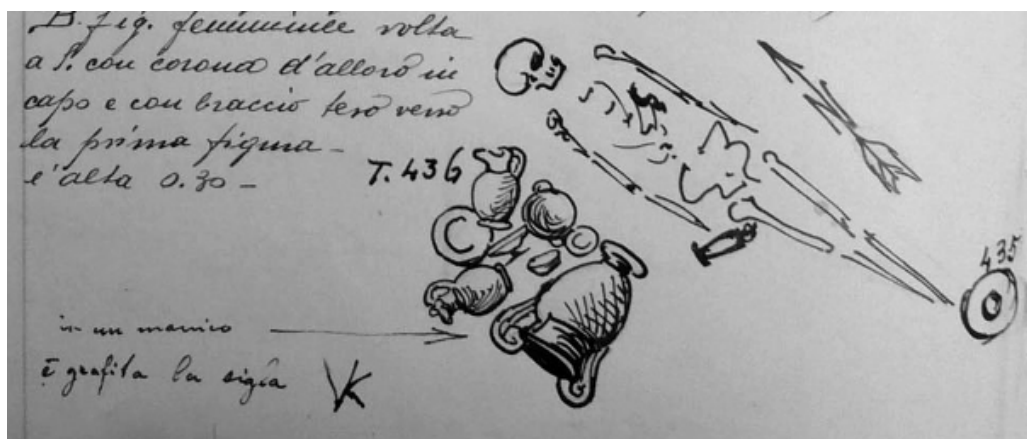 B. fig. femminile volta
a S. con corona d'alloro in
capo e con braccio teso verso
la prima figura -
è alta 0.30 -
T. 436
435
N
in un manico
è grafita la sigla VK